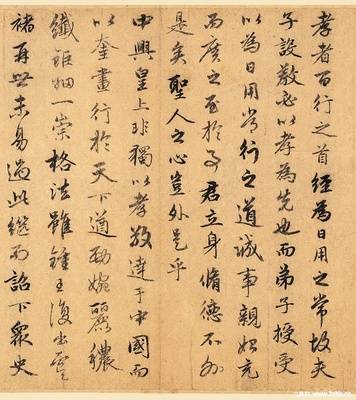 孝者百行之首經為日用之常故夫
子設教必以孝為先也而弟子授受
以為日用常行之道誠事親始充
而廣之至於事君立身脩德不外
是矣聖人之心豈外是乎
中興皇上非獨以孝敬達于中國而
以奎畫行於天下遒勁婉麗穠
纖鉅細一崇格法雖鍾王復出虞
褚再世未易過此繼而詔下眾史